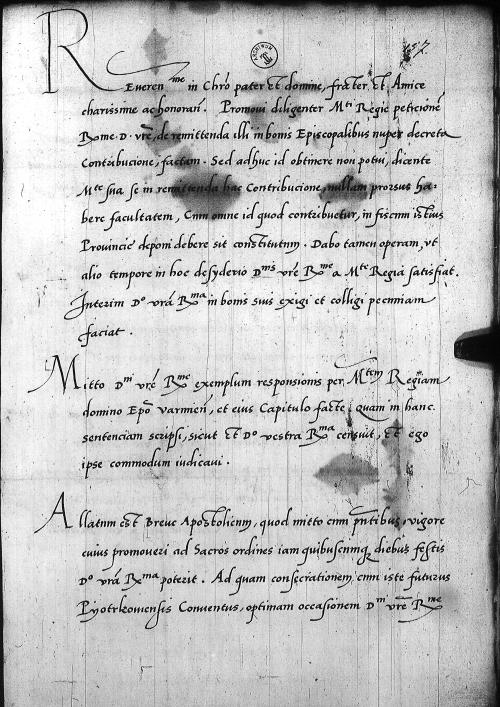 Reveren^me in Chro pater et domine, frater et Amice
charissime ac honoran̄. Promovi diligenter M^ti Regie peticionē
R̄me D. vrē, de remittenda illi in bonis Episcopalibus nuper decreta
Contribucione, factam. Sed adhuc id obtinere non potui, dicente
M^te sua se in remittenda hac Contribucione, nullam prorsus ha-
bere facultatem, Cum omne id quod contribuetur, in fiscum istius
Provincie deponi debere sit constitutum. Dabo tamen operam, vt
alio tempore in hoc desyderio D^nis vrē R^me a M^te Regia satisfiat.
Interim D^o vrā R^ma in bonis suis exigi et colligi pecuniam
faciat.
Mitto D^ni vrē R^me exemplum responsionis per M^tem Regiam
domino Epo varmień, et eius Capitulo facte, quam in hanc
sentenciam scripsi, sicut et D^o vestra R^ma censuit, et ego
ipse commodum iudicavi.
Allatum est Breve Apostolicum, quod mitto cum pn̄tibus, vigore
cuius promoveri ad Sacros ordines iam quibuscumq diebus festis
D^o vrā R^ma poterit. Ad quam consecrationem, cum iste futurus
Pyotrkoviensis Conventus, optimam occasionem D^ni vrē R^me